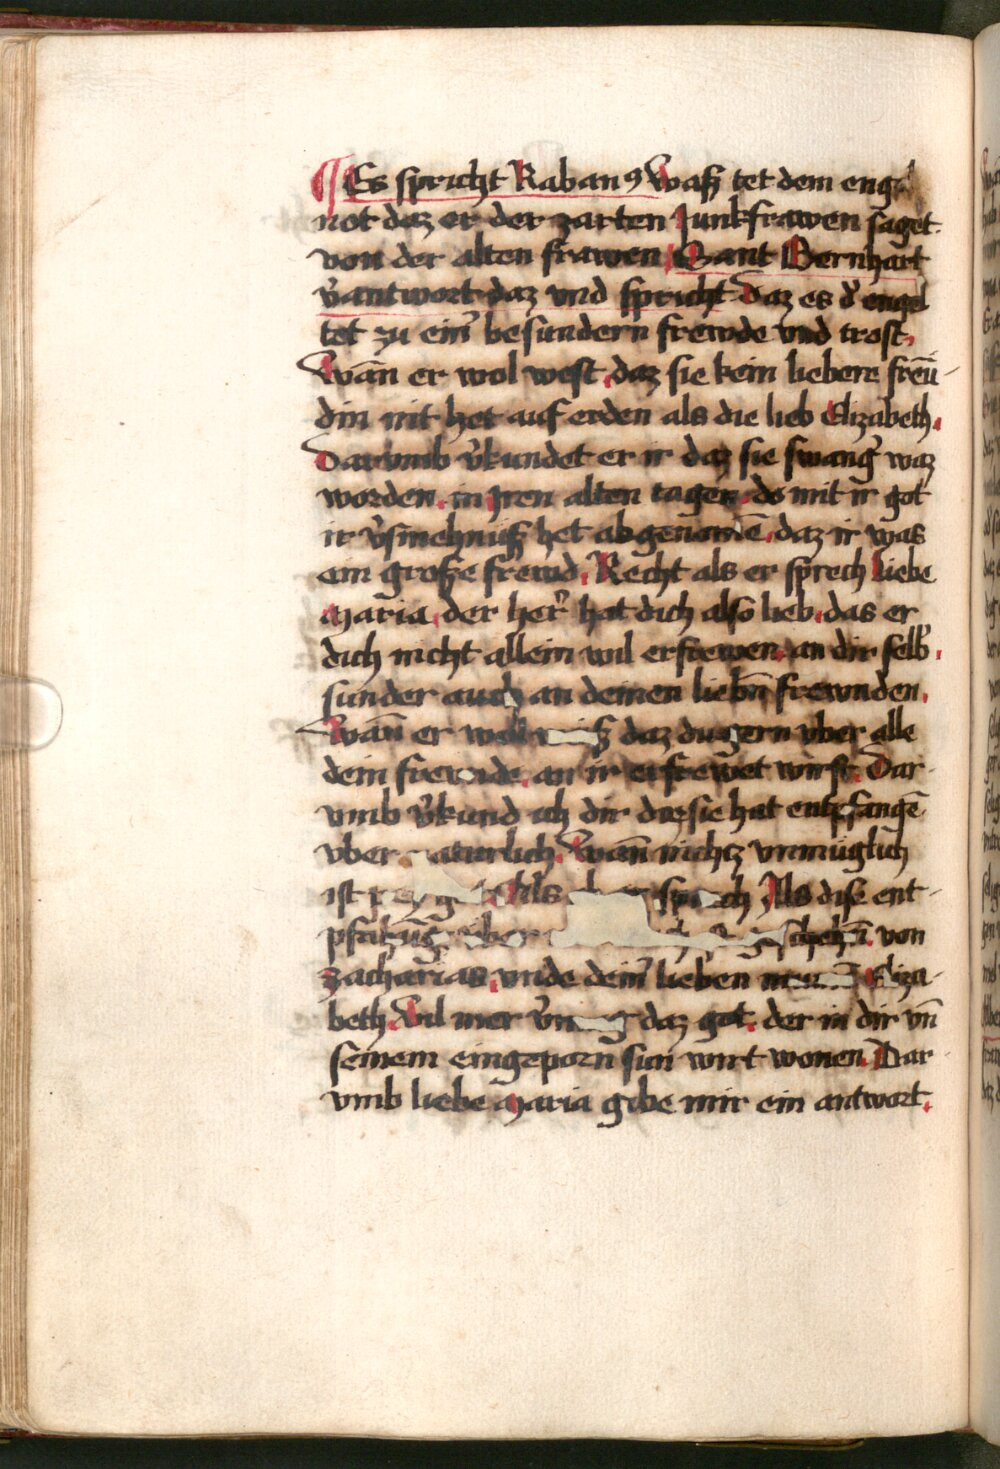 ¶ Es spricht Rabanꝰ waß tet dem engel
not daz er der zarten Junkfrawen saget
von der alten frawen Sant Bernhart
v̉antwort daz vnd spricht Daz es d̉ engel
tet zu eim̉ besundern frewde vnd trost.
Wān er wol west daz sie kein liebere freū
din nit het auf erden als die lieb Elizabeth.
Darvmb v̉kundet er ir daz sie swang̉ waz
worden. in Jren alten tagen do mit ir got
ir v̉smehnuß het abgenomē. daz ir was
ein große frewd. Recht als er sprech liebe
Maria. der her̉ hat dich also lieb. das er
dich nicht allein wil erfrewen. an dir selb̉.
sunder auch an deinen liebn̄ frewnden.
Wān er wol daz du gern vber alle
dein frewnde. an ir erfrewet wirst. Dar
vmb v̉kund ich dir daz sie hat entpfangē
vber naturlich. Wān nichtz vnmuglich
ist Als sprach Als dise ent
pfahūg vber von
zacharias vnde deim̉ lieben Eliza
beth. Vil mer daz got. der in dir vn̄
seinem eingeporn sun wirt wonen. Dar
vmb liebe Maria gibe mir ein antwort.